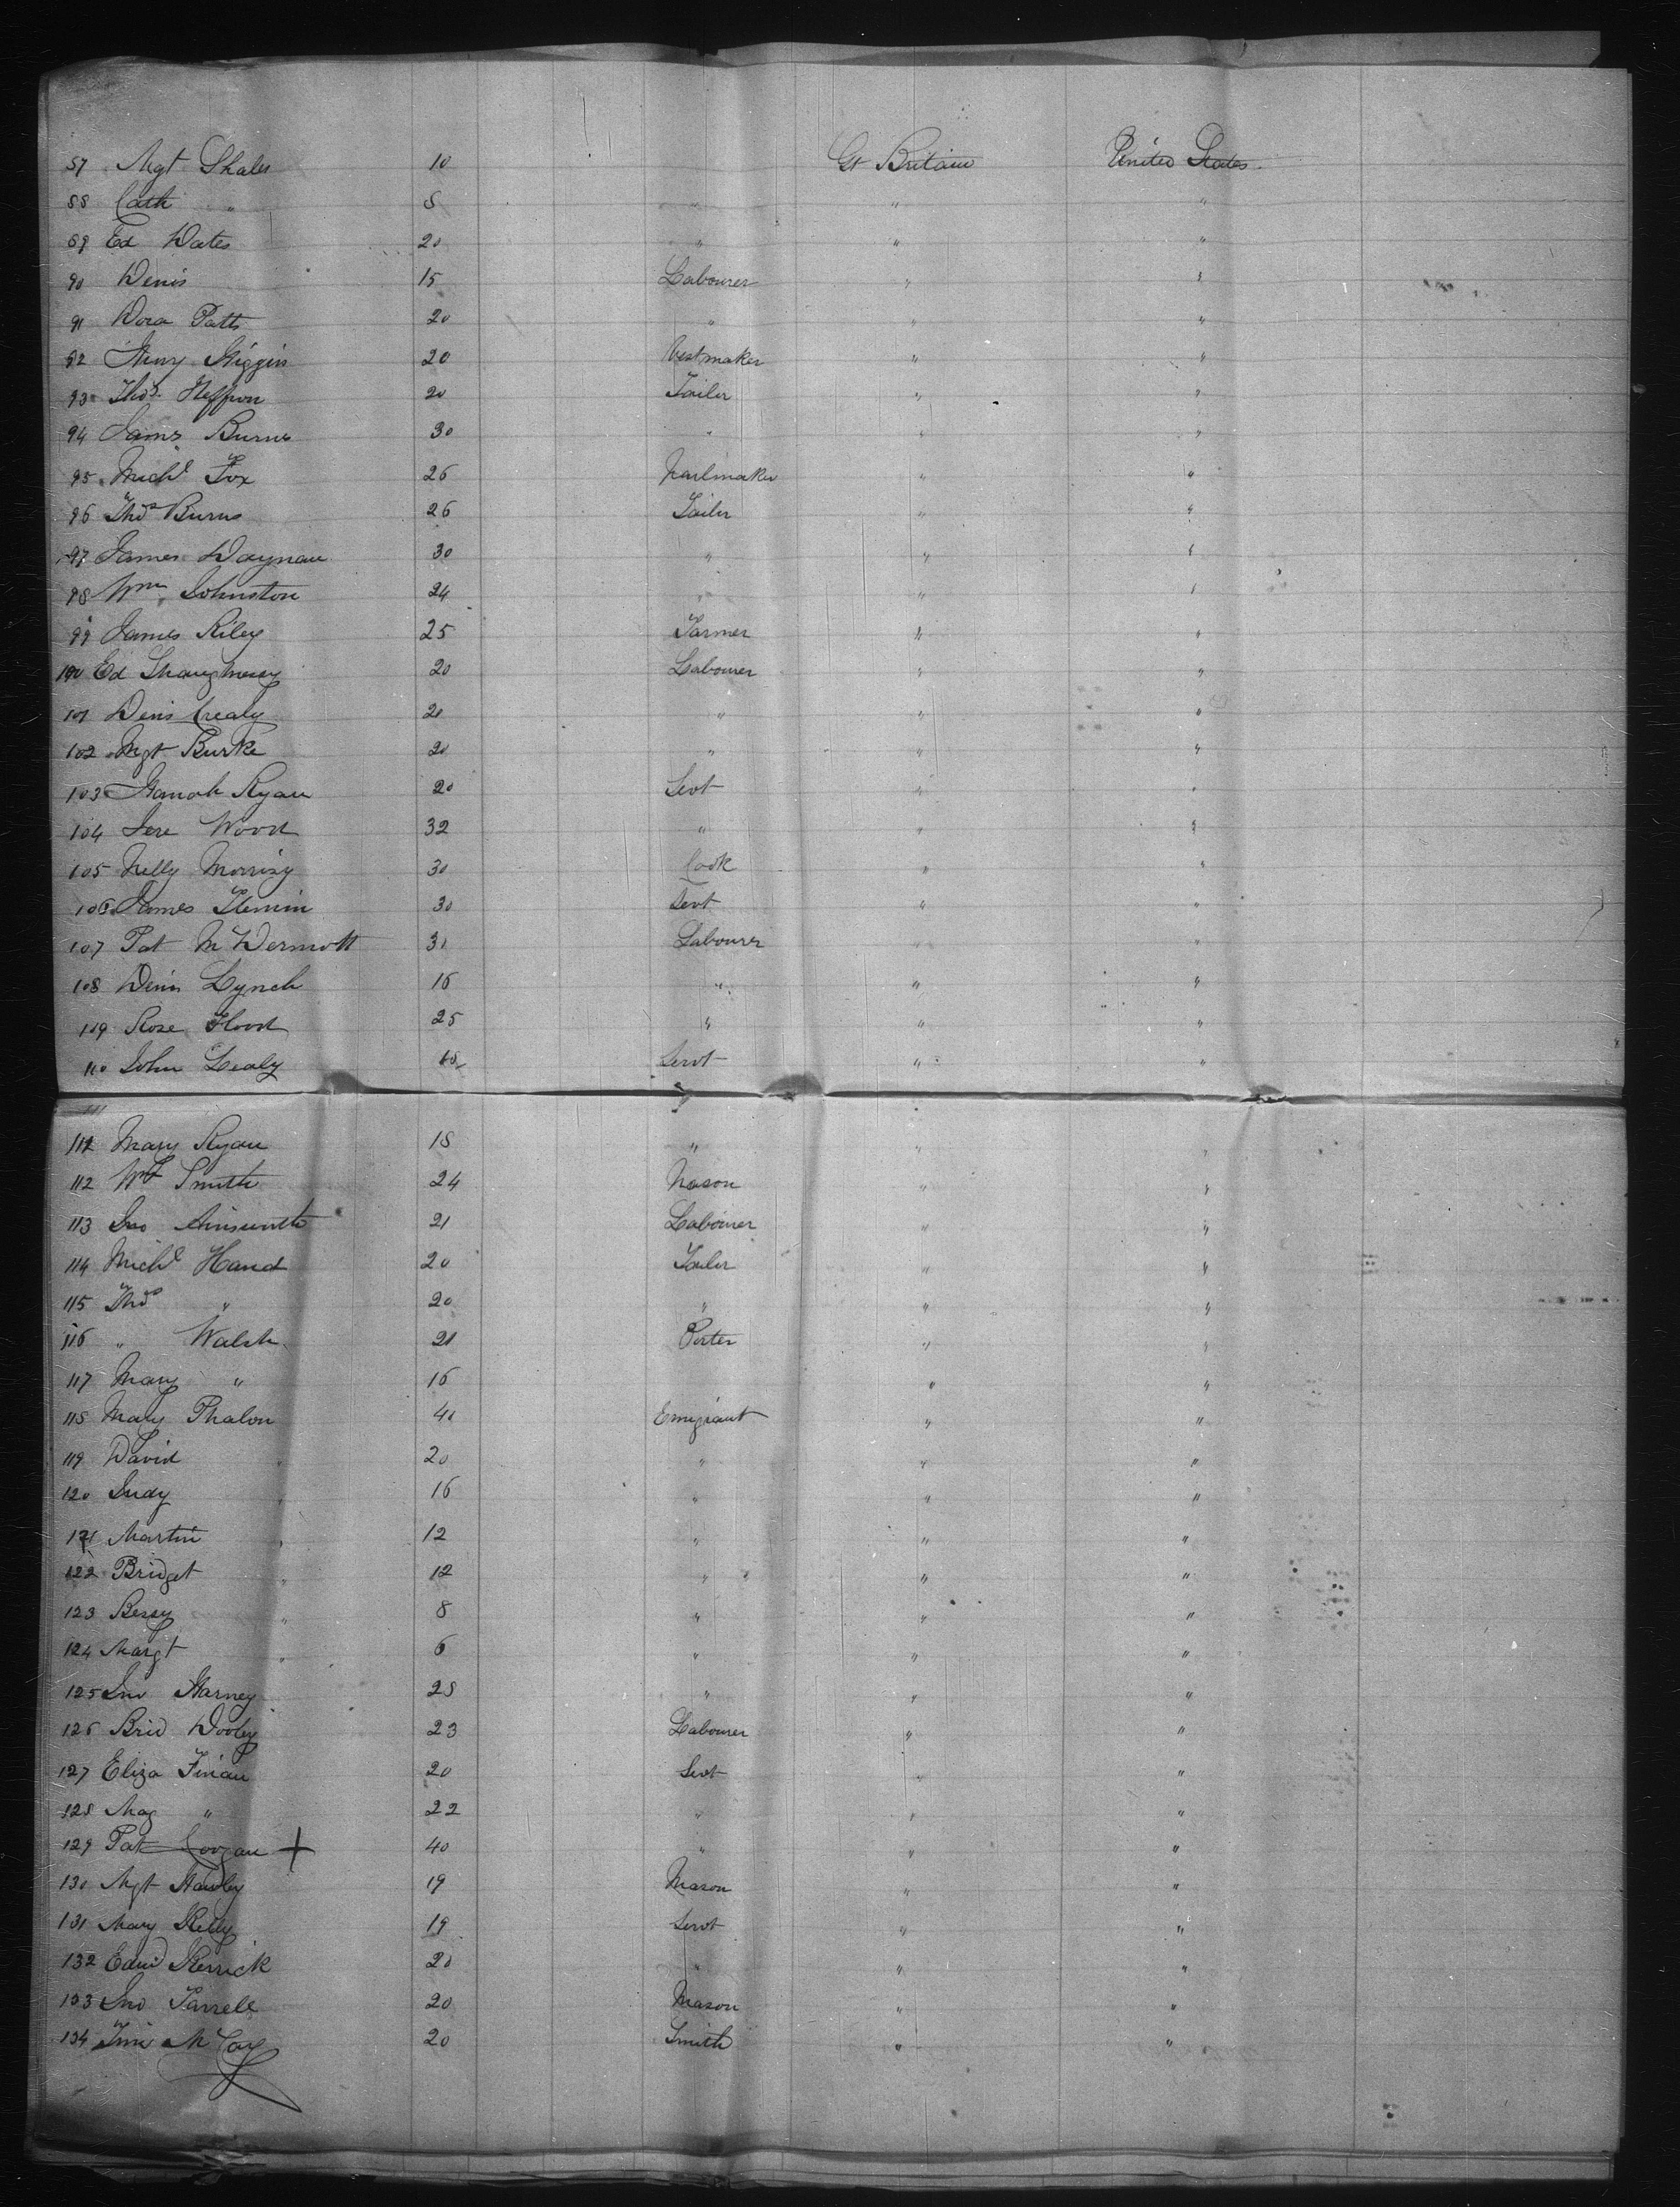 87 Mgt Shales 10 Gt Britain United States
88 Cath " 8 " " "
89 Ed Oates 20 " " "
90 Denis 15 Labourer " "
91 Dora Patts 20 " " "
92 Henry Higgin 20 Vestmaker " "
93 Thos. Heffron 20 Tailor " "
94 James Burns 30 " " "
95 Michl Fox 26 Nailmaker " "
96 Thos Burns 26 Tailor " "
97 James Daynan 30 " " "
98 Wm Johnston 24 " " "
99 James Riley 25 Farmer " "
100 Ed Shaughnesy 20 Labourer " "
101 Denis Crealy 20 " " "
102 Mgt Burke 20 " " "
103 Hanah Ryan 20 Sevt " "
104 Jere Wood 32 " " "
105 Nelly Morrisy 30 Cook " "
106 James Flemin 30 Sevt " "
107 Pat McDermott 30 Labourer " "
108 Denis Lynch 16 " " "
109 Rose Flood 25 " " "
110 John Lealy Servt " "
111 "
111 Mary Ryan 18 " " "
112 Wm Smith 24 Mason " "
113 Jno Ainsworth 21 Labourer " "
114 Michl Hand 20 Tailor " "
115 Thos " 20 " " "
116 " Walsh 21 Porter " "
117 Mary " 16 " "
118 Mary Phalon 40 Emigrant " "
119 David " 20 " " "
120 Judy " 16 " " "
121 Martin " 12 " " "
122 Bridget " 12 " " "
123 Bessy " 8 " " "
124 Margt " 6 " " "
125 Jno Harney 28 " " "
126 Brid Dooly 23 Labourer " "
127 Eliza Finan 20 Sevt " "
128 Mag " 22 " " "
129 Pat Coogan + 40 " " "
130 Mgt Hawley 19 Mason " "
131 Mary Kelly 19 Servt " "
132 Edwd Kerrick 20 " " "
133 Jno Farrell 20 Mason " "
134 Tim McCoy 20 Smith " "